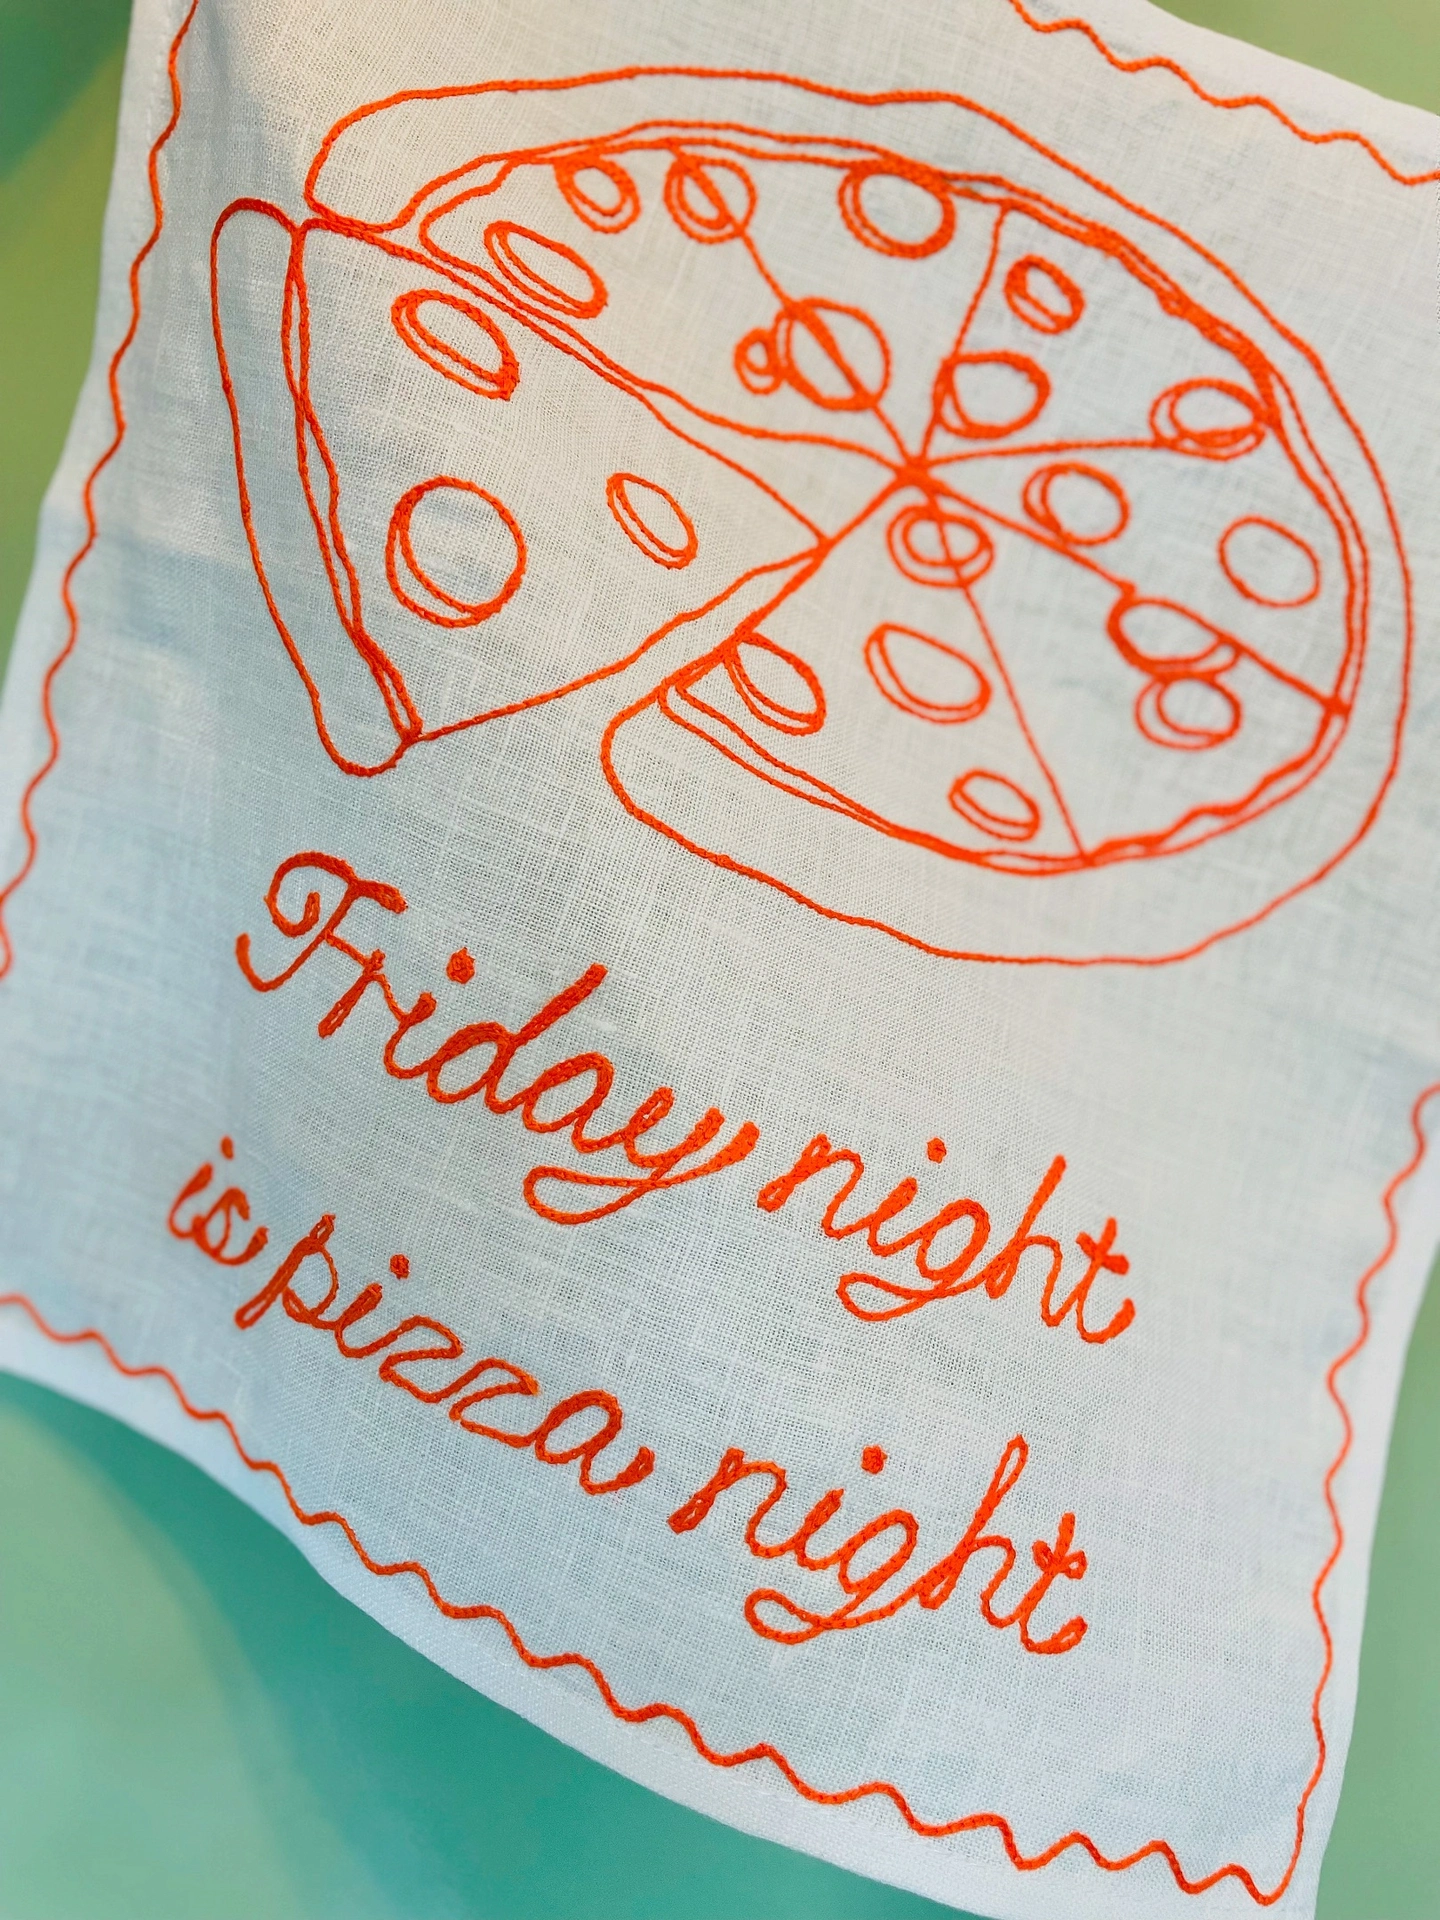 Friday night
is pizza night